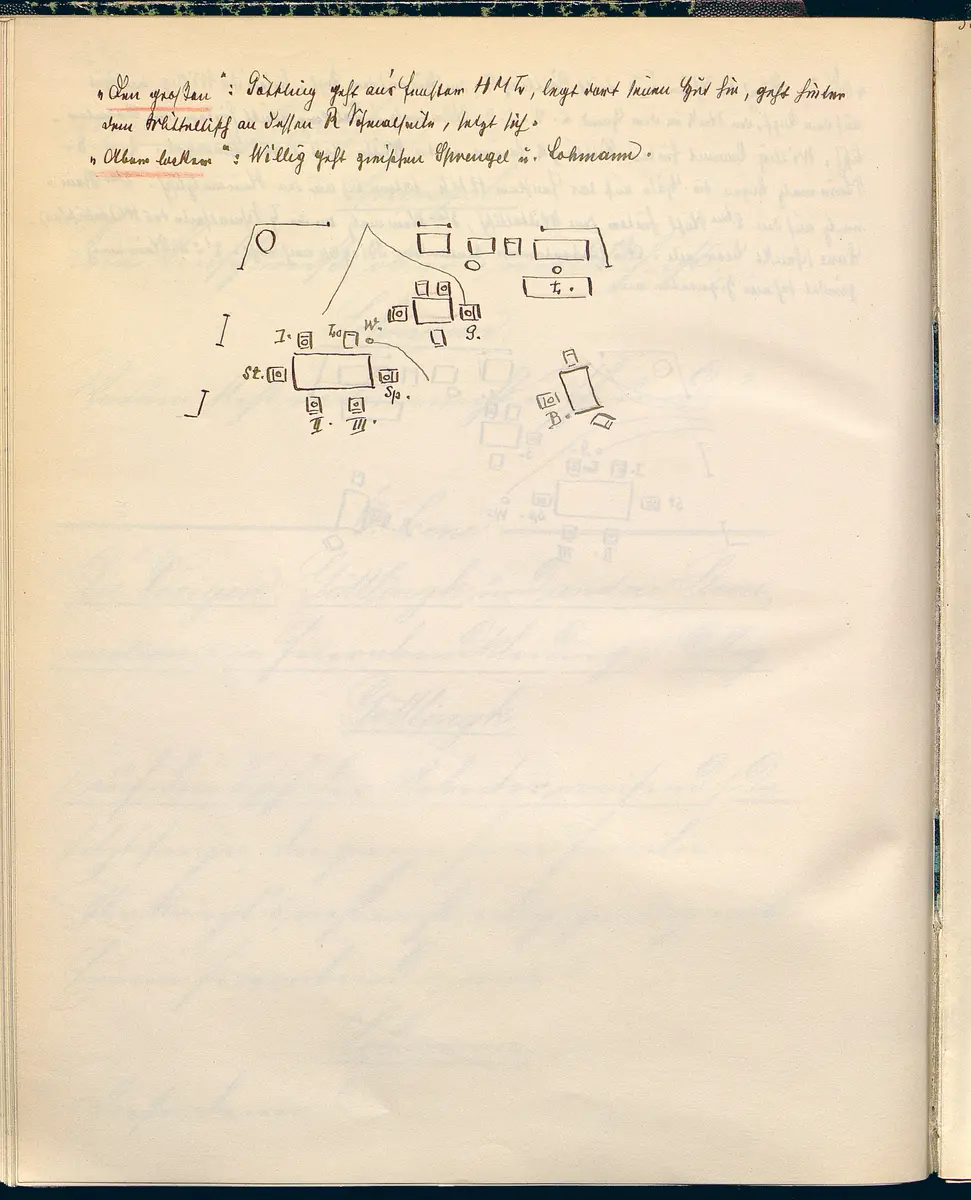 „Den großen“: Göttling geht aus Fenster HML, legt dort seinen Hut hin, geht hinter
dem Mitteltisch an dessen R Schmalseite, setzt sich.
„Aber lecker“: Willig geht zwischen Sprengel u. Lohmann.
t.
I. Lo W. G.
St. Sp.
II. III. B.